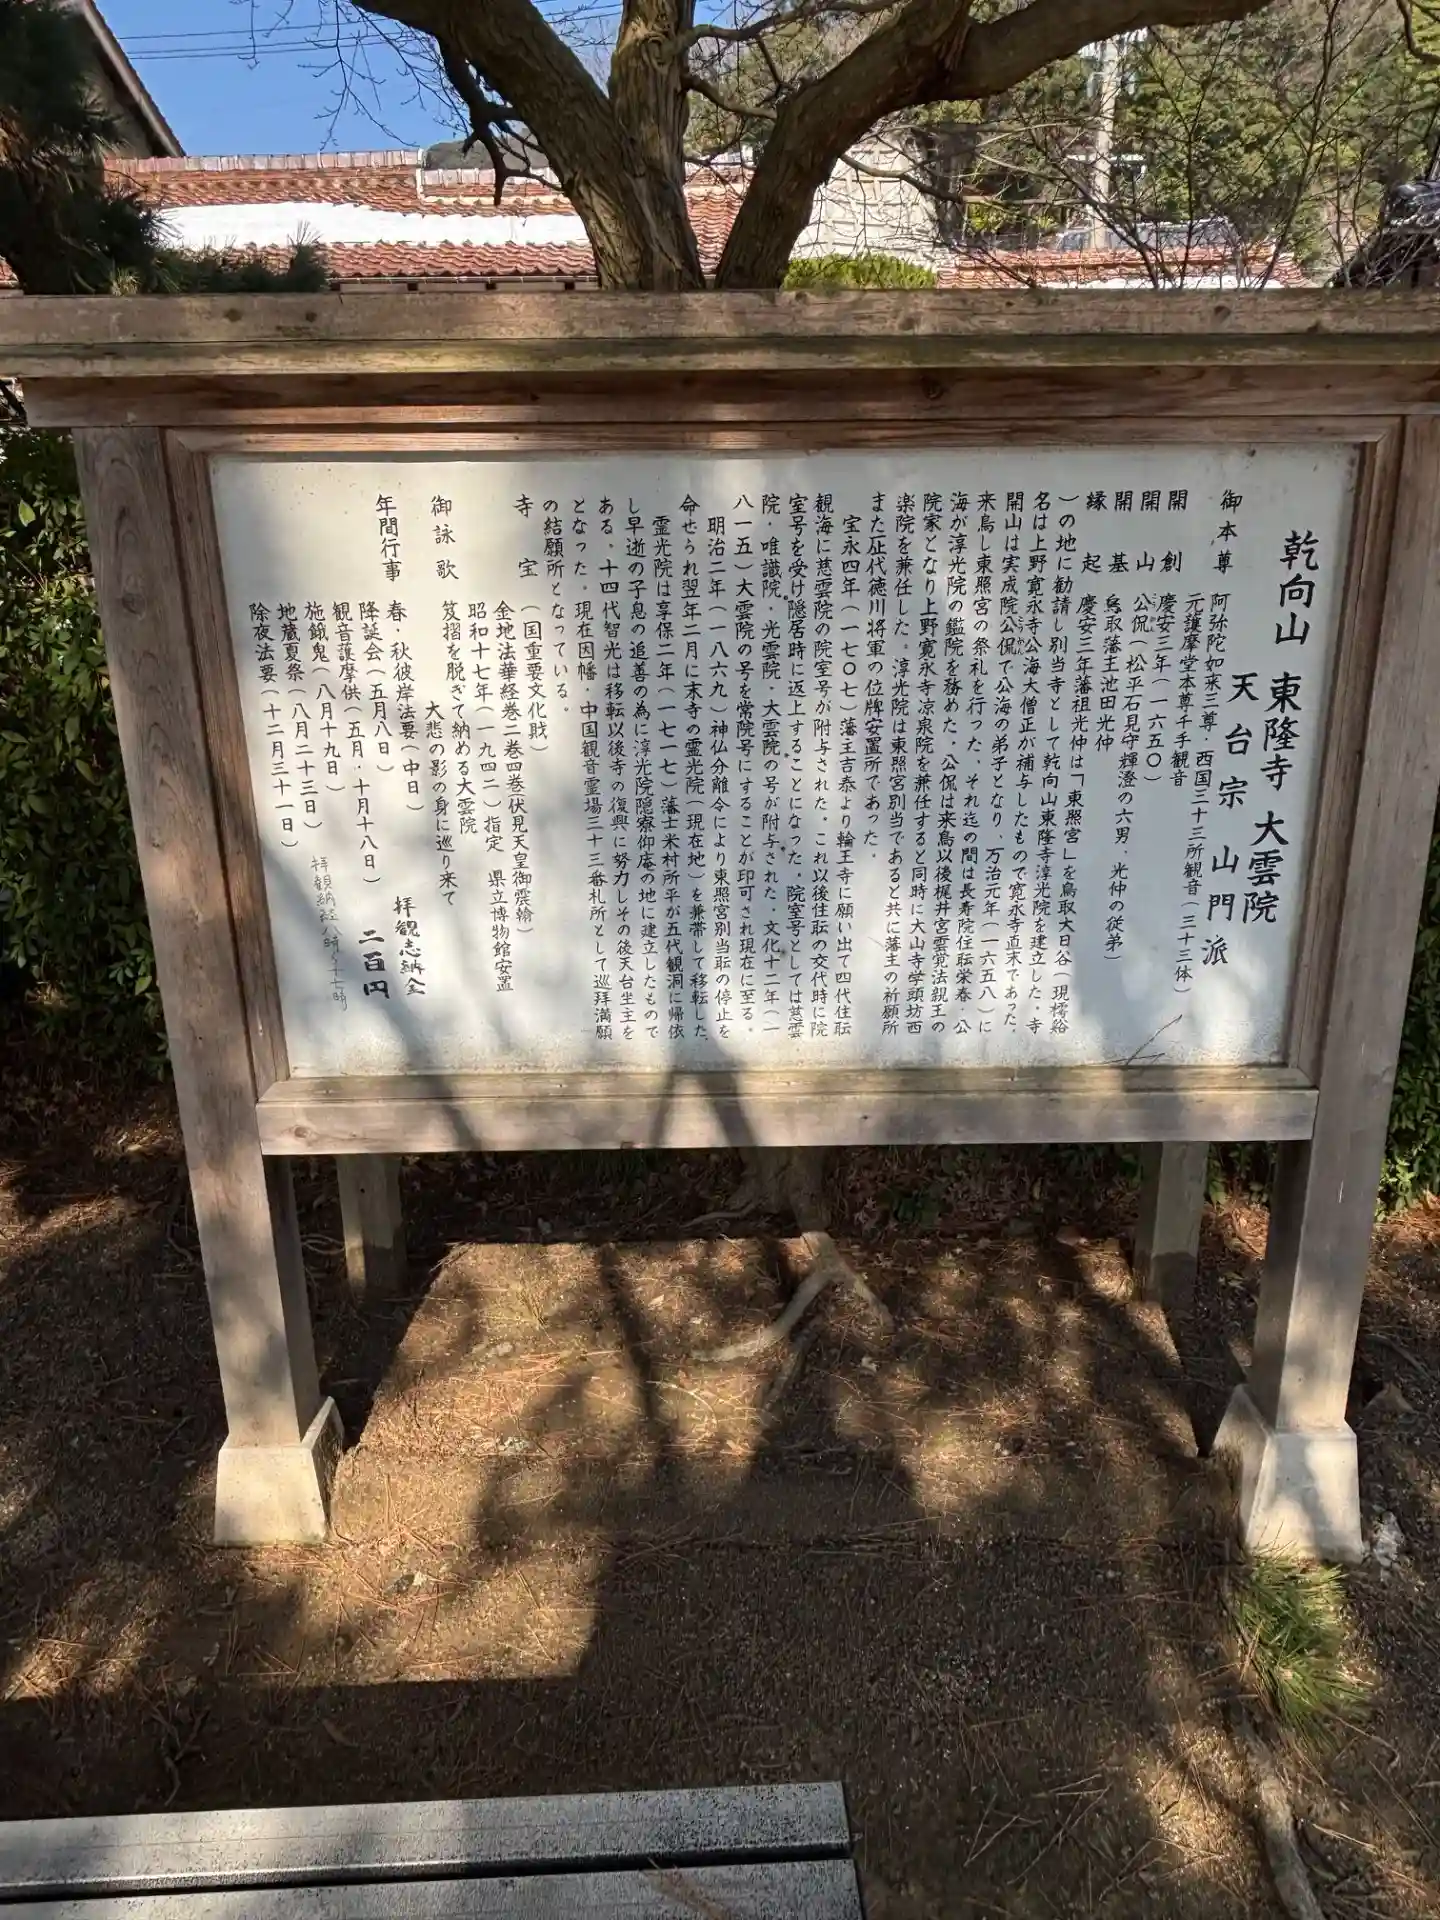 乾向山 東隆寺 大雲院
天台宗 山門派
御本尊 阿弥陀如来三尊・西国三十三所観音(三十三体)
元護摩堂本尊千手観音
開創 慶安三年(一六五〇)
開山 公侃(松平石見守輝澄の六男・光仲の従弟)
開基 鳥取藩主池田光仲
縁起 慶安三年藩祖光仲は「東照宮」を鳥取大日谷(現樗谿
)の地に勧請し別当寺として乾向山東隆寺淳光院を建立した。寺
名は上野寛永寺公海大僧正が補与したもので寛永寺直末であった。
開山は実成院公侃で公海の弟子となり、万治元年(一六五八)に
来鳥し東照宮の祭礼を行った、それ迄の間は長寿院住耘栄春・公
海が淳光院の鑑院を務めた。公侃は来鳥以後梶井宮雲覚法親王の
院家となり上野寛永寺凉泉院を兼任すると同時に大山寺学頭坊西
楽院を兼任した。淳光院は東照宮別当であると共に藩主の祈願所
また歴代徳川将軍の位牌安置所であった。
宝永四年(一七〇七)藩主吉泰より輪王寺に願い出て四代住耘
観海に慈雲院の院室号が附与された。これ以後住耘の交代時に院
室号を受け隠居時に返上することになった。院室号としては慈雲
院・唯識院・光雲院・大雲院の号が附与された。文化十二年(一
八一五)大雲院の号を常院号にすることが印可され現在に至る。
明治二年(一八六九)神仏分離令により東照宮別当耘の停止を
命せられ翌年二月に末寺の霊光院(現在地)を兼帯して移転した。
霊光院は享保二年(一七一七)藩士米村所平が五代観洞に帰依
し早逝の子息の追善の為に淳光院隠寮御庵の地に建立したもので
ある。十四代智光は移転以後寺の復興に努力しその後天台坐主を
となった。現在因幡・中国観音霊場三十三番札所として巡拜満願
の結願所となっている。
寺宝 (国重要文化財)
金地法華経巻二巻四巻伏見天皇御宸翰)
昭和十七年(一九四二)指定 県立博物館安置
御詠歌 笈摺を脱ぎて納める大雲院
大悲の影の身に巡り来て
年間行事 春・秋彼岸法要(中日)
降誕会(五月八日)
観音護摩供(五月・十月十八日)
施餓鬼(八月十九日)
地蔵夏祭(八月二十三日)
除夜法要(十二月三十一日)
拝観志納金
二百円
拝観納経八時〜十七時